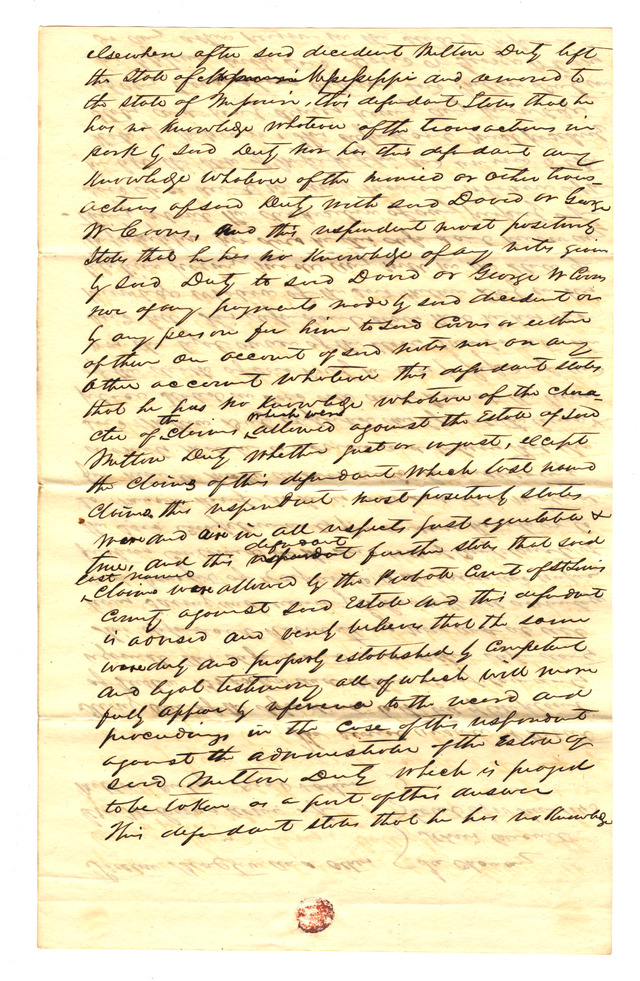 elsewhere after said decedent Milton Duty left
the State of Mississippi and removed to
the state of Missouri, this defendant States that he
has no knowledge whatever of the transactions in
pork by said Duty nor has this defendant any
knowledge whatever of the monied or other trans-
actions of said Duty with said David or George
W Coons, and this respondent most positively
states that he has no knowledge of any notes given
by said Duty to said David or George W Coons
nor of any payments made by said decedent or
by any person for him to said Coons or either
of them on account of said notes nor on any
other account whatever this defendant states
that he has no knowledge whatever of the chara-
cter of the claims which were allowed against the Estate of said
Milton Duty whether just or unjust, except
the claims of this defendant which last named
claims this respondent most positively states
were and are in all respects just equitable &
true, and this defendant further states that said
last named claims were allowed by the Probate Court of St Louis
County against said Estate and this defendant
is advised and verily believes that the same
were duly and properly established by competent
and legal testimony all of which will more
fully appear by reference to the record and
proceedings in the case of this respondent
against the administrator of the Estate of
said Milton Duty which is prayed
to be taken as a part of this answer
This defendant states that he has no knowledge